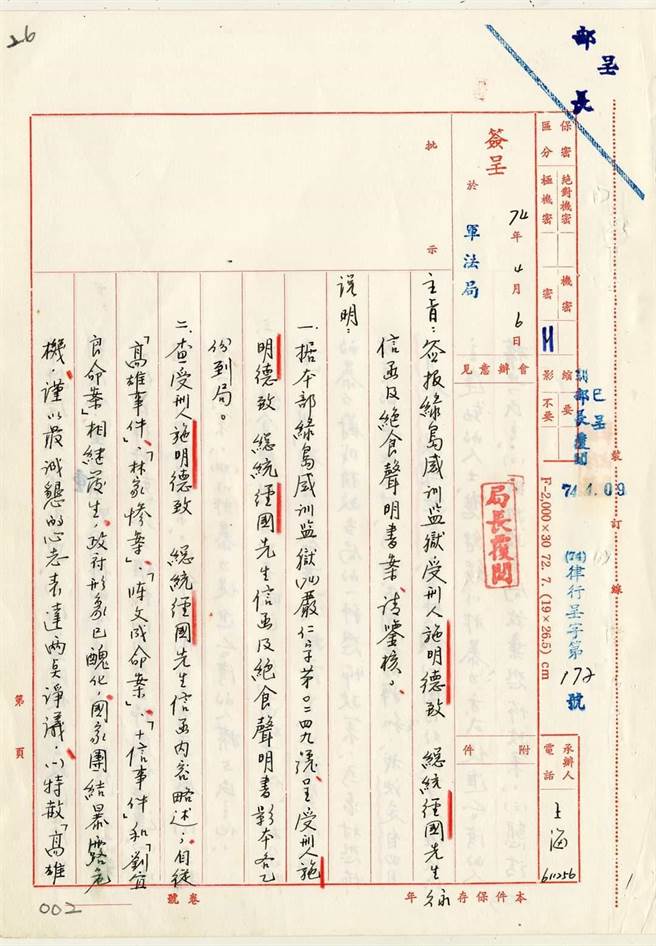 26
部
呈
長
保密區分
絕對機密
極機密
機密
密
縮影
要
不要
已呈
副部長覆閱
74.4.09
裝訂線
F-2,000×30 72. 7. (19×26.5) cm
(74)律行呈字第172號
承辦人
電話
上海
611256
簽呈
於
軍法局
74年4月6日
會辦意見
局長覆閱
附件
本件保存 年
批示
主旨：簽報綠島感訓監獄受刑人施明德致 總統經國先生
信函及絕食聲明書案、請鑒核。
說明：
一、據本部綠島感訓監獄(74)嚴仁字第〇二四九號呈受刑人施
明德致 總統經國先生信函及絕食聲明書影本各乙
份到局。
二、查受刑人施明德致 總統經國先生信函內容略述；自從
「高雄事件」、「林家慘案」、「陳文成命案」、「十信事件」和「劉宜
良命案」相結廣生，政府形象已醜化，國家團結暴露危
機，謹以最誠懇的心志表達兩員諍議，以特赦「高雄
第 頁
卷號
002